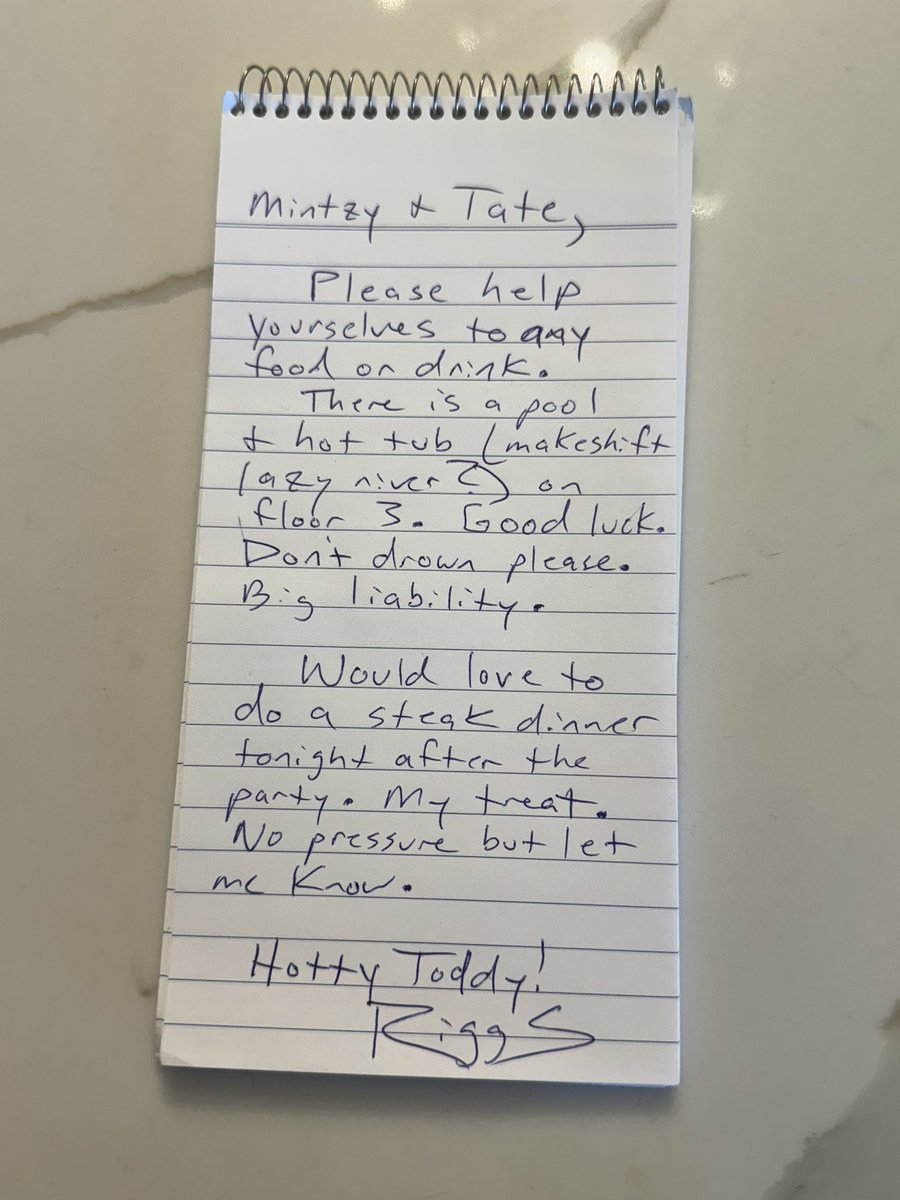 Mintzy & Tate,
Please help
yourselves to any
food or drink.
There is a pool
& hot tub (makeshift
lazy river?) on
floor 3. Good luck.
Don't drown please.
Big liability.
Would love to
do a steak dinner
tonight after the
party. My treat.
No pressure but let
me know.
Hotty Toddy!
Riggs